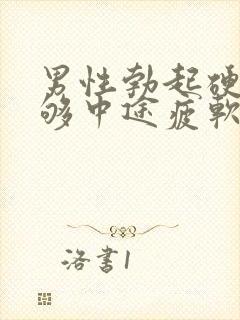 男性勃起硬
够中途疲软
洛书1